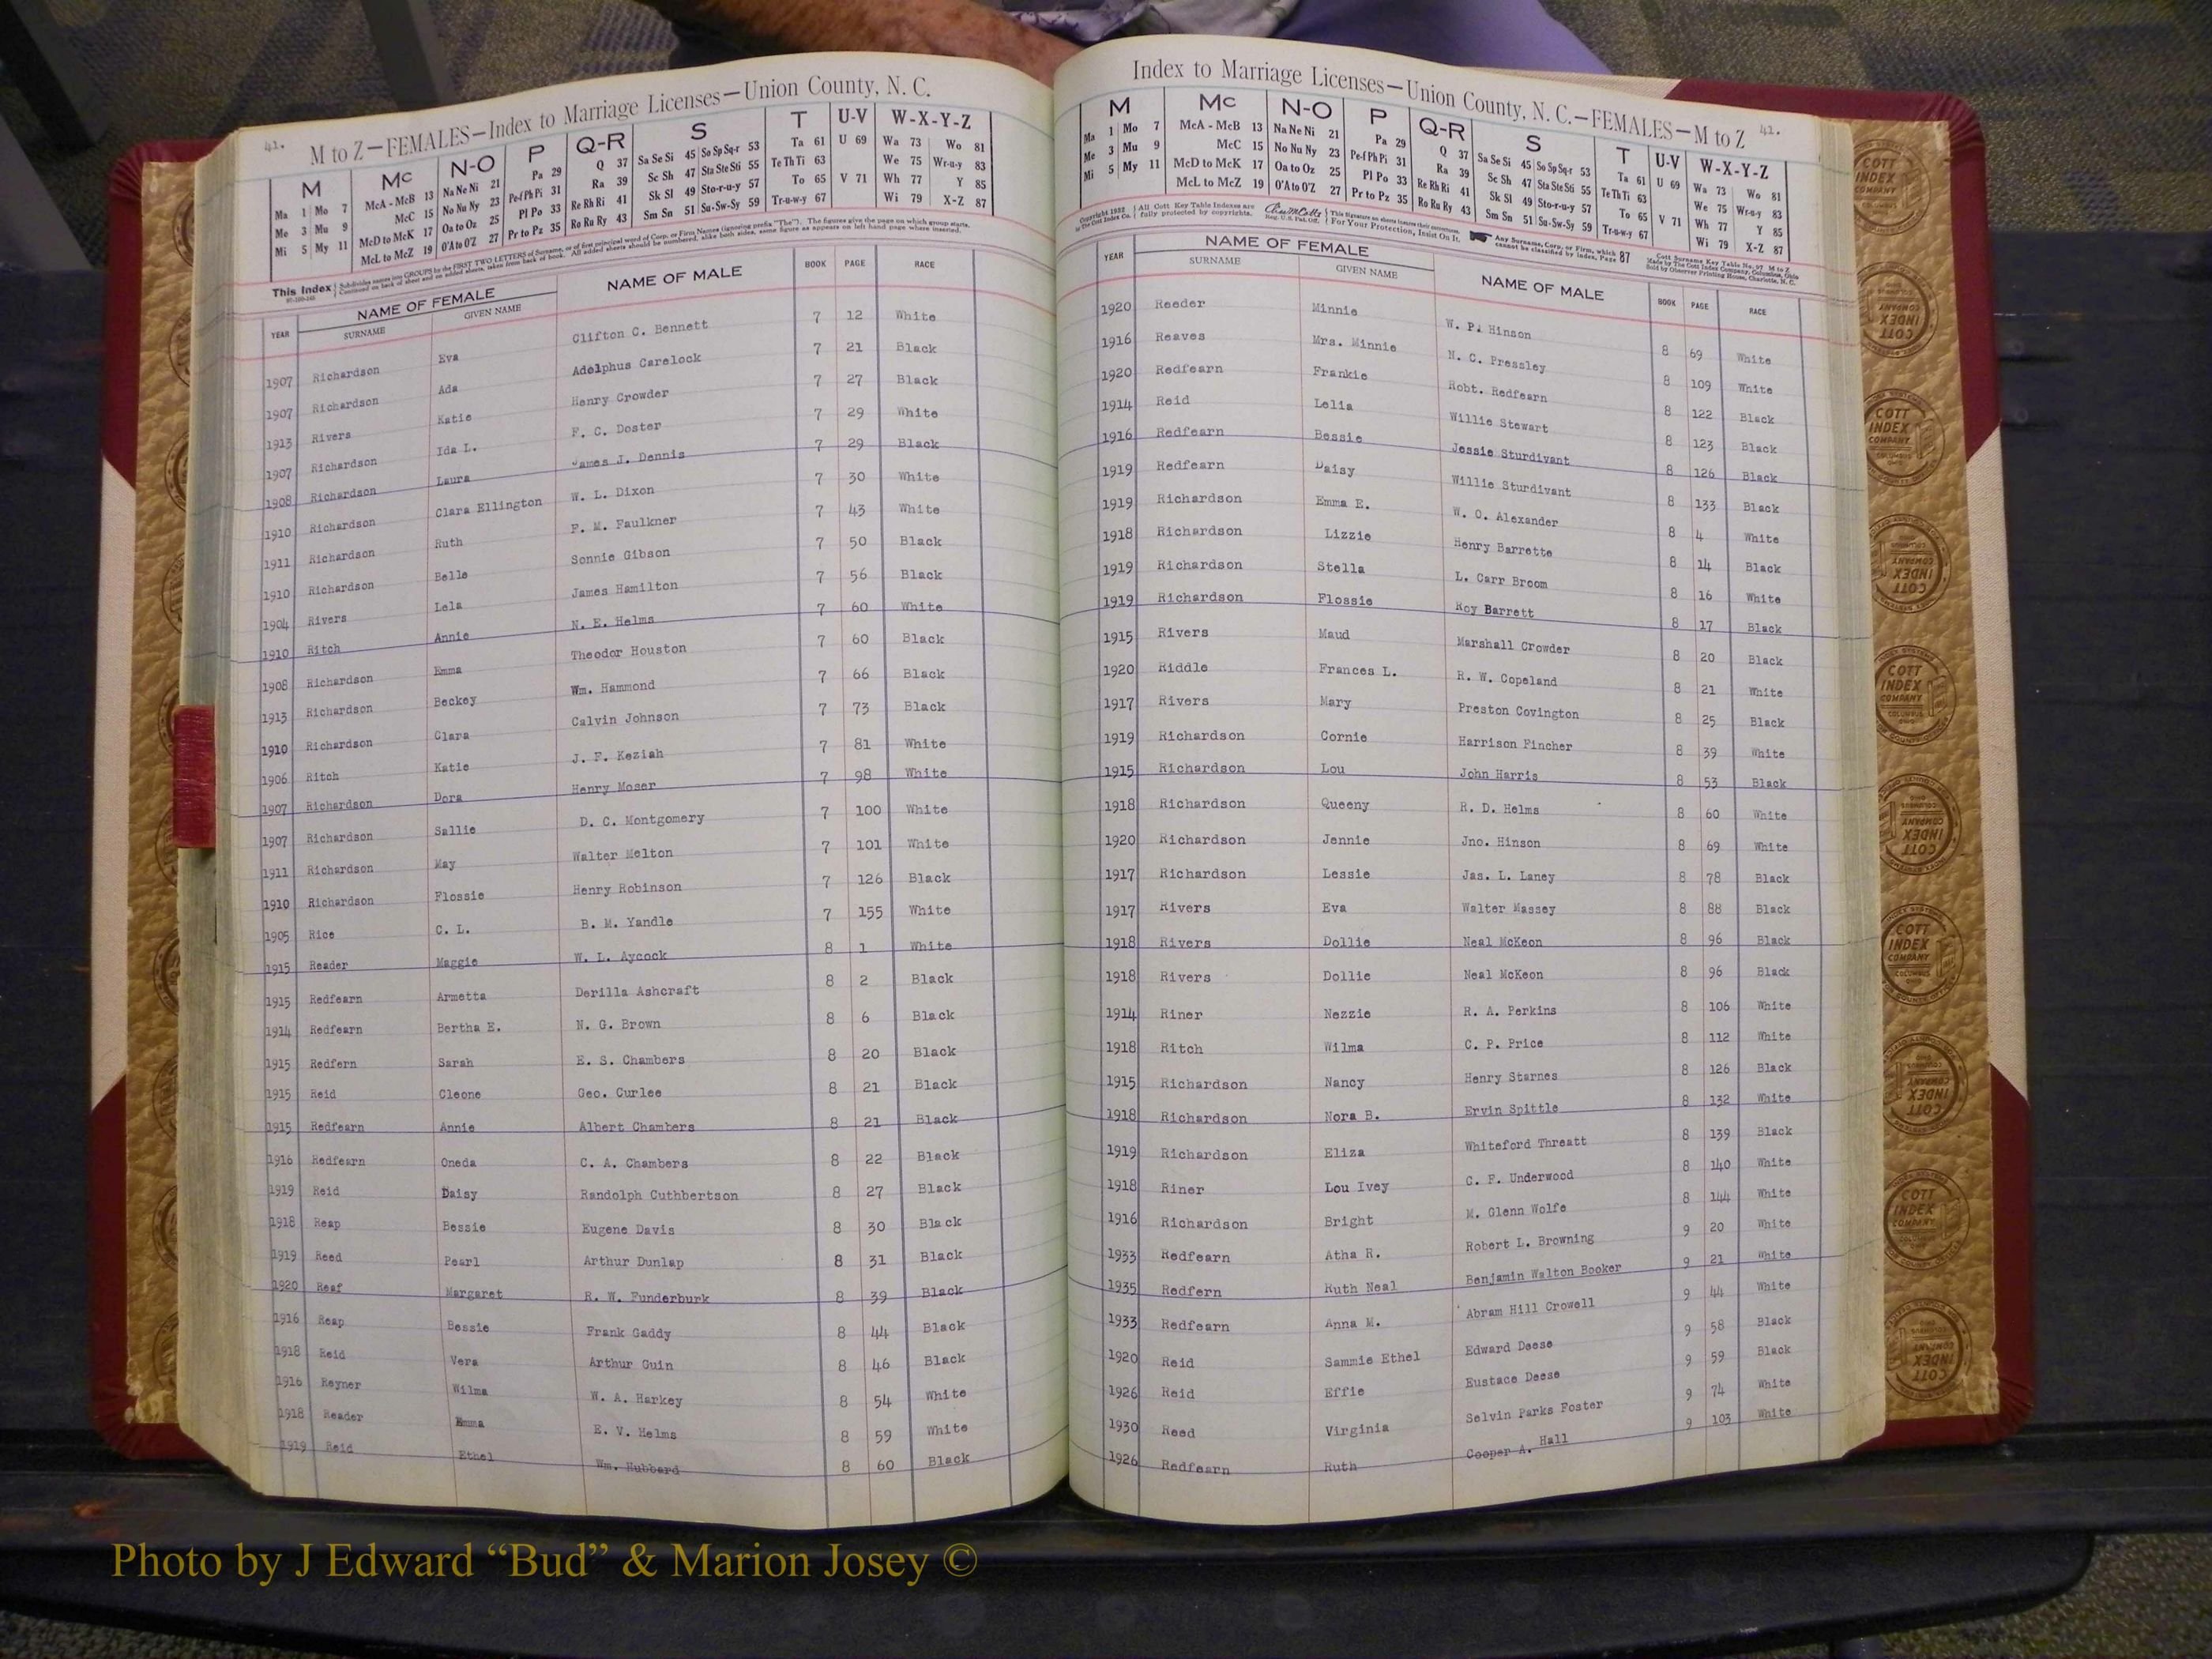 41.
M to Z—FEMALES—Index to Marriage Licenses—Union County, N. C.
M Mc N-O P Q-R S T U-V W-X-Y-Z
Ma 1 Mo 7 McA - McB 13 Na Ne Ni 21 Pa 29 Q 37 Sa Se Si 45 So Sp Sq-r 53 Ta 61 U 69 Wa 73 Wo 81
Me 3 Mu 9 McC 15 No Nu Ny 23 Pe-f Ph Pi 31 Ra 39 Sc Sh 47 Sta Ste Sti 55 Te Th Ti 63 We 75 Wr-u-y 83
Mi 5 My 11 McD to McK 17 Oa to Oz 25 Pl Po 33 Re Rh Ri 41 Sk Sl 49 Sto-r-u-y 57 To 65 V 71 Wh 77 Y 85
McL to McZ 19 O'A to O'Z 27 Pr to Pz 35 Ro Ru Ry 43 Sm Sn 51 Su-Sw-Sy 59 Tr-u-w-y 67 Wi 79 X-Z 87
This Index Subdivides names into GROUPS by the FIRST TWO LETTERS of Surname, or of first principal word of Corp. or Firm Names (ignoring prefix "The"). The figures give the page on which group starts.
Continued on back of sheet and on added sheets, taken from back of book. All added sheets should be numbered, alike both sides, same figure as appears on left hand page where inserted.
YEAR NAME OF FEMALE NAME OF MALE BOOK PAGE RACE
SURNAME GIVEN NAME
1907 Richardson Eva Clifton C. Bennett 7 12 White
1907 Richardson Ada Adolphus Carelock 7 21 Black
1913 Rivers Katie Henry Crowder 7 27 Black
1907 Richardson Ida L. F. C. Doster 7 29 White
1908 Richardson Laura James J. Dennis 7 29 Black
1910 Richardson Clara Ellington W. L. Dixon 7 30 White
1911 Richardson Ruth F. M. Faulkner 7 43 White
1910 Richardson Belle Sonnie Gibson 7 50 Black
1904 Rivers Lela James Hamilton 7 56 Black
1910 Ritch Annie N. E. Helms 7 60 White
1908 Richardson Emma Theodor Houston 7 60 Black
1913 Richardson Beckey Wm. Hammond 7 66 Black
1910 Richardson Clara Calvin Johnson 7 73 Black
1906 Ritch Katie J. F. Keziah 7 81 White
1907 Richardson Dora Henry Moser 7 98 White
1907 Richardson Sallie D. C. Montgomery 7 100 White
1911 Richardson May Walter Melton 7 101 White
1910 Richardson Flossie Henry Robinson 7 126 Black
1905 Rice C. L. B. M. Yandle 7 155 White
1915 Reader Maggie W. L. Aycock 8 1 White
1915 Redfearn Armetta Derilla Ashcraft 8 2 Black
1914 Redfearn Bertha E. N. G. Brown 8 6 Black
1915 Redfern Sarah E. S. Chambers 8 20 Black
1915 Reid Cleone Geo. Curlee 8 21 Black
1915 Redfearn Annie Albert Chambers 8 21 Black
1916 Redfearn Oneda C. A. Chambers 8 22 Black
1919 Reid Daisy Randolph Cuthbertson 8 27 Black
1918 Reap Bessie Eugene Davis 8 30 Black
1919 Reed Pearl Arthur Dunlap 8 31 Black
1920 Reaf Margaret R. W. Funderburk 8 39 Black
1916 Reap Bessie Frank Gaddy 8 44 Black
1918 Reid Vera Arthur Guin 8 46 Black
1916 Reyner Wilma W. A. Harkey 8 54 White
1918 Reader Emma E. V. Helms 8 59 White
1919 Reid Ethel Wm. Hubbard 8 60 Black
Index to Marriage Licenses—Union County, N. C.—FEMALES—M to Z 41.
M Mc N-O P Q-R S T U-V W-X-Y-Z
Ma 1 Mo 7 McA - McB 13 Na Ne Ni 21 Pa 29 Q 37 Sa Se Si 45 So Sp Sq-r 53 Ta 61 U 69 Wa 73 Wo 81
Me 3 Mu 9 McC 15 No Nu Ny 23 Pe-f Ph Pi 31 Ra 39 Sc Sh 47 Sta Ste Sti 55 Te Th Ti 63 We 75 Wr-u-y 83
Mi 5 My 11 McD to McK 17 Oa to Oz 25 Pl Po 33 Re Rh Ri 41 Sk Sl 49 Sto-r-u-y 57 To 65 V 71 Wh 77 Y 85
McL to McZ 19 O'A to O'Z 27 Pr to Pz 35 Ro Ru Ry 43 Sm Sn 51 Su-Sw-Sy 59 Tr-u-w-y 67 Wi 79 X-Z 87
Copyright 1932 All Cott Key Table Indexes are This signature on sheets insures their correctness. Any Surname, Corp. or Firm, which 87 Cott Surname Key Table No. 97 M to Z
to The Cott Index Co. fully protected by copyrights. Reg. U.S. Pat. Off. For Your Protection, Insist On It. cannot be classified by Index, Page Made by The Cott Index Company, Columbus, Ohio
Sold by Observer Printing House, Charlotte, N. C.
YEAR NAME OF FEMALE NAME OF MALE BOOK PAGE RACE
SURNAME GIVEN NAME
1920 Reeder Minnie W. P. Hinson 8 69 White
1916 Reaves Mrs. Minnie N. C. Pressley 8 109 White
1920 Redfearn Frankie Robt. Redfearn 8 122 Black
1914 Reid Lelia Willie Stewart 8 123 Black
1916 Redfearn Bessie Jessie Sturdivant 8 126 Black
1919 Redfearn Daisy Willie Sturdivant 8 133 Black
1919 Richardson Emma E. W. O. Alexander 8 4 White
1918 Richardson Lizzie Henry Barrette 8 14 Black
1919 Richardson Stella L. Carr Broom 8 16 White
1919 Richardson Flossie Roy Barrett 8 17 Black
1915 Rivers Maud Marshall Crowder 8 20 Black
1920 Riddle Frances L. R. W. Copeland 8 21 White
1917 Rivers Mary Preston Covington 8 25 Black
1919 Richardson Cornie Harrison Fincher 8 39 White
1915 Richardson Lou John Harris 8 53 Black
1918 Richardson Queeny R. D. Helms 8 60 White
1920 Richardson Jennie Jno. Hinson 8 69 White
1917 Richardson Lessie Jas. L. Laney 8 78 Black
1917 Rivers Eva Walter Massey 8 88 Black
1918 Rivers Dollie Neal McKeon 8 96 Black
1918 Rivers Dollie Neal McKeon 8 96 Black
1914 Riner Nezzie R. A. Perkins 8 106 White
1918 Ritch Wilma C. P. Price 8 112 White
1915 Richardson Nancy Henry Starnes 8 126 Black
1918 Richardson Nora B. Ervin Spittle 8 132 White
1919 Richardson Eliza Whiteford Threatt 8 139 Black
1918 Riner Lou Ivey C. F. Underwood 8 140 White
1916 Richardson Bright M. Glenn Wolfe 8 144 White
1933 Redfearn Atha R. Robert L. Browning 9 20 White
1935 Redfern Ruth Neal Benjamin Walton Booker 9 21 White
1933 Redfearn Anna M. Abram Hill Crowell 9 44 White
1920 Reid Sammie Ethel Edward Deese 9 58 Black
1926 Reid Effie Eustace Deese 9 59 Black
1930 Reed Virginia Selvin Parks Foster 9 74 White
1926 Redfearn Ruth Cooper A. Hall 9 103 White
COTT INDEX COMPANY
Photo by J Edward “Bud” & Marion Josey ©